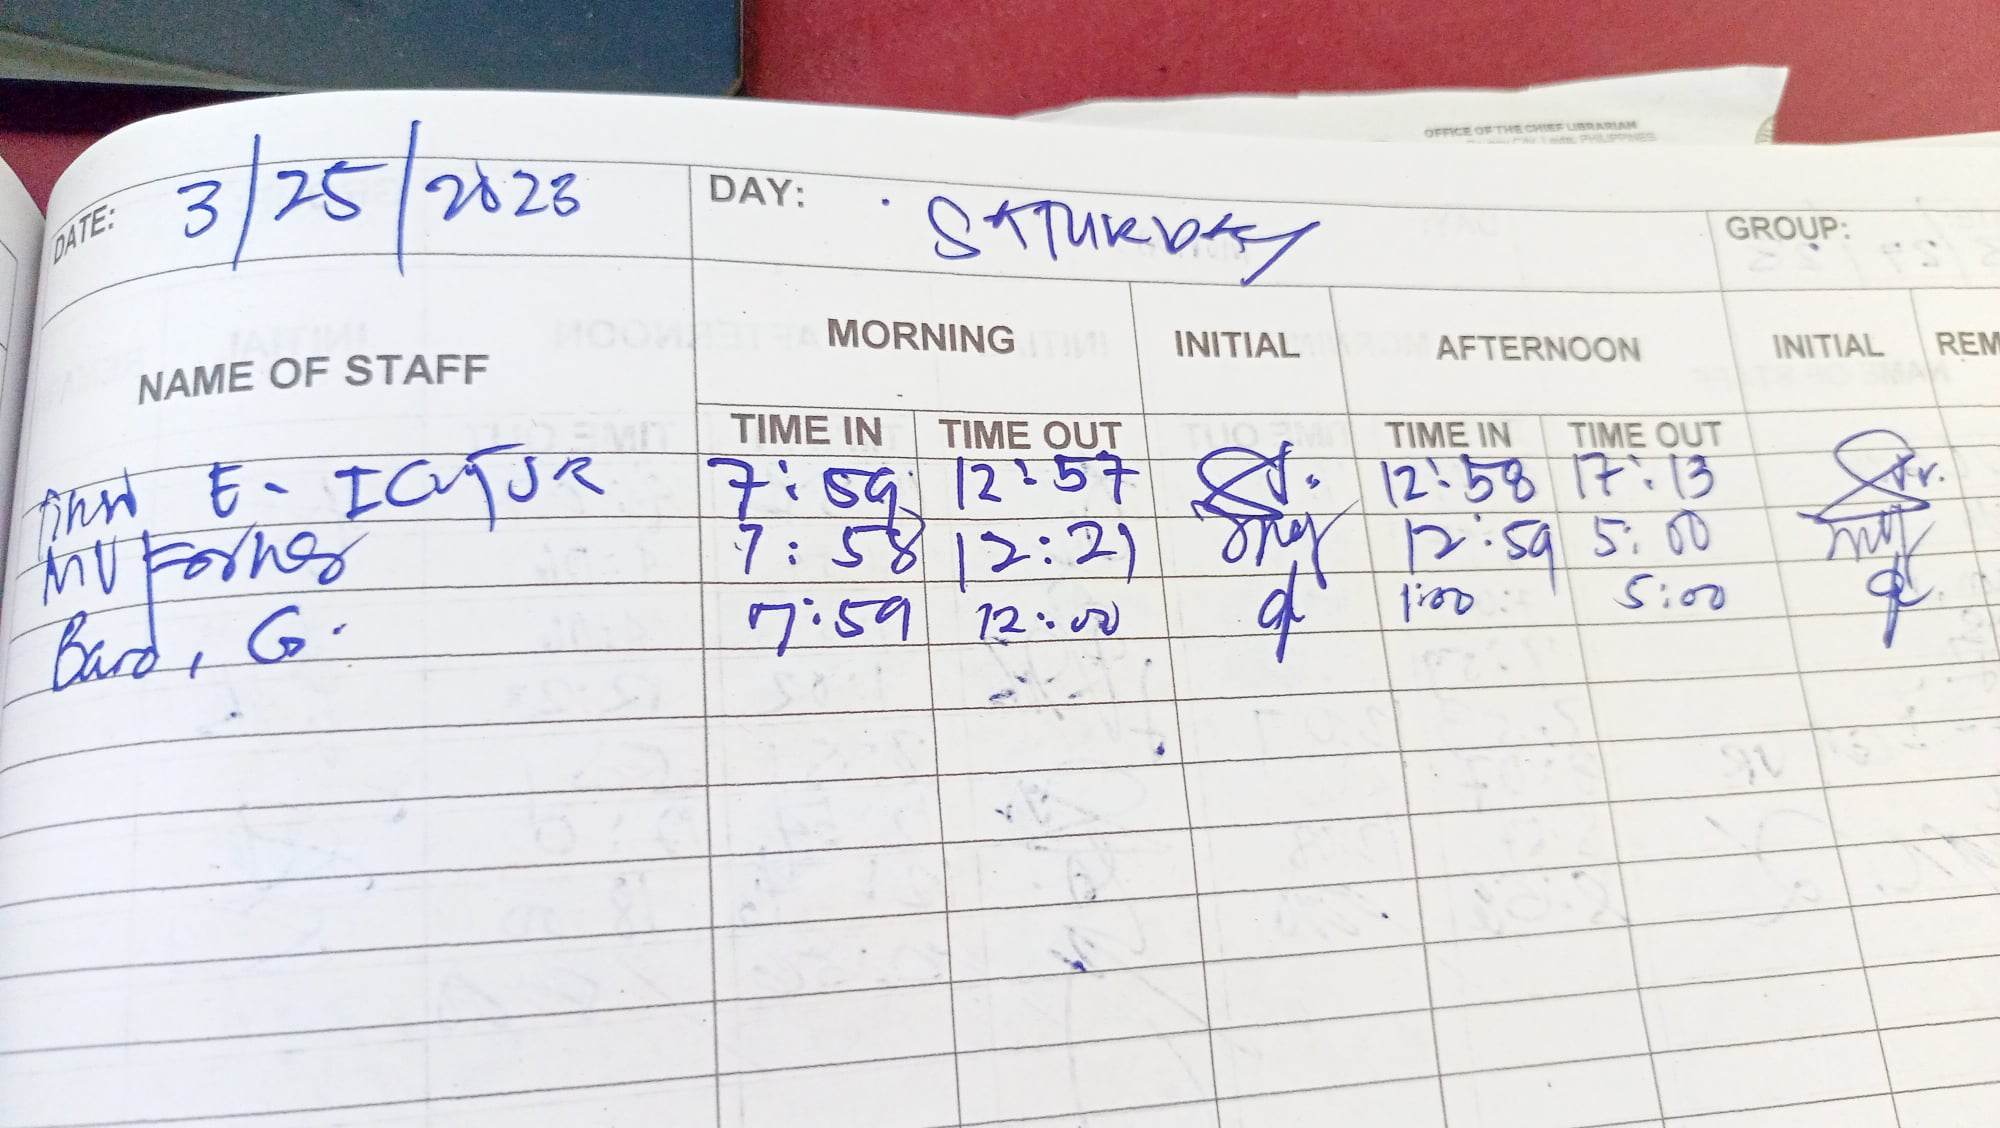 OFFICE OF THE CHIEF LIBRARIAN
DATE: 3/25/2023 DAY: SATURDAY GROUP:
NAME OF STAFF MORNING INITIAL AFTERNOON INITIAL REM
TIME IN TIME OUT TIME IN TIME OUT
E. JR 7:59 12:57 12:58 17:13
MV Forhes 7:58 12:21 12:59 5:00
Baro, G. 7:59 12:00 1:00 5:00